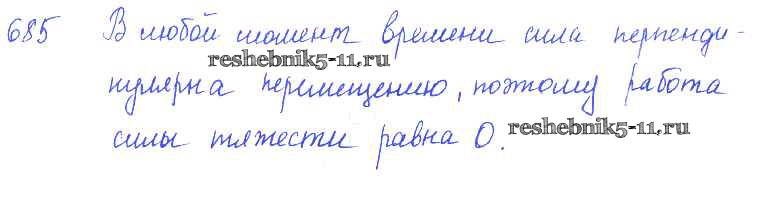 685 В любой момент времени сила перпенди-
reshebnik5-11.ru
кулярна перемещению, поэтому работа
силы тяжести равна 0.
reshebnik5-11.ru